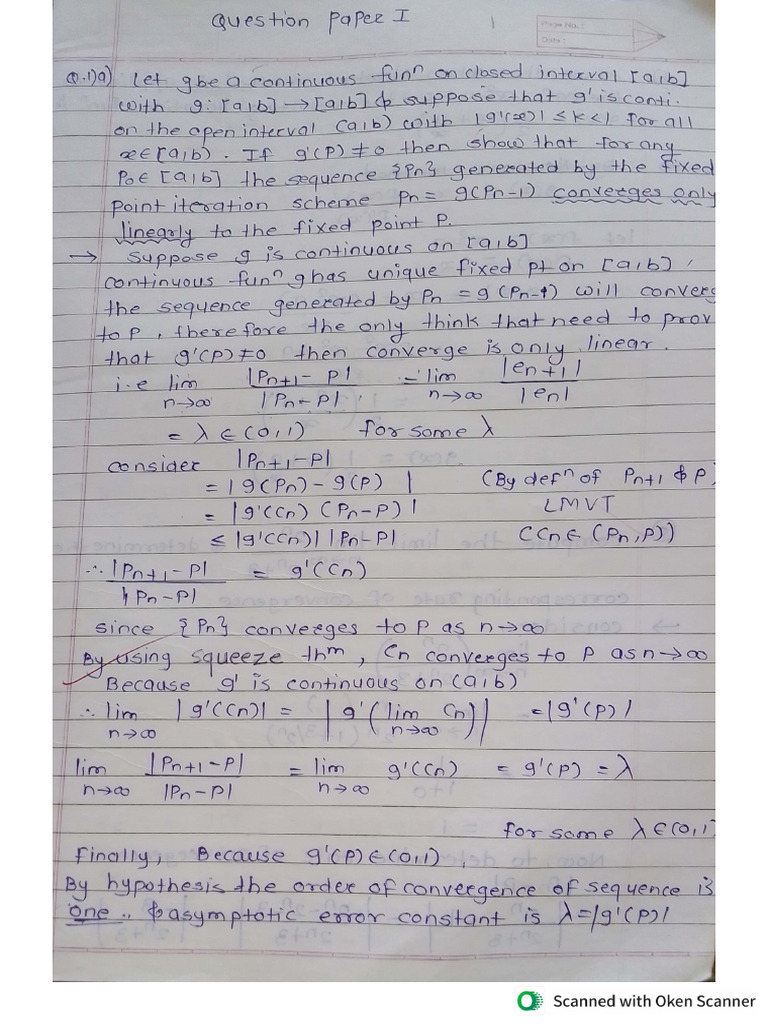 Question Paper I
1
Page No.:
Date:
Q.1)a) Let g be a continuous funⁿ on closed interval [a,b]
with g: [a,b] → [a,b] & suppose that g' is conti.
on the open interval (a,b) with |g'(x)| ≤ k < 1 for all
x∈[a,b). If g'(P) ≠ 0 then show that for any
P₀∈ [a,b] the sequence {Pn} generated by the fixed
point iteration scheme Pn = g(Pn-1) converges only
linearly to the fixed point P.
→ Suppose g is continuous on [a,b]
continuous funⁿ g has unique fixed pt on [a,b),
the sequence generated by Pn = g(Pn-1) will converg
to P, therefore the only think that need to prov
that g'(P) ≠ 0 then converge is only linear.
i.e lim n→∞ |Pn+1 - P| / |Pn - P| = lim n→∞ |en+1| / |en|
= λ ∈ (0,1) for some λ
consider |Pn+1 - P|
= |g(Pn) - g(P) | (By defⁿ of Pn+1 & P)
= |g'(Cn) (Pn-P)| LMVT
≤ |g'(Cn)| |Pn-P| (Cn∈ (Pn,P))
∴ |Pn+1 - P| / |Pn - P| = g'(Cn)
since {Pn} converges to P as n→∞
By using squeeze thᵐ, Cn converges to P as n→∞
Because g' is continuous on (a,b)
∴ lim n→∞ |g'(Cn)| = |g'(lim n→∞ Cn)| = |g'(P)|
lim n→∞ |Pn+1 - P| / |Pn - P| = lim n→∞ g'(Cn) = g'(P) = λ
for some λ∈(0,1
Finally, Because g'(P)∈(0,1),
By hypothesis the order of convergence of sequence is
one .. & asymptotic error constant is λ=|g'(P)|
Scanned with Oken Scanner